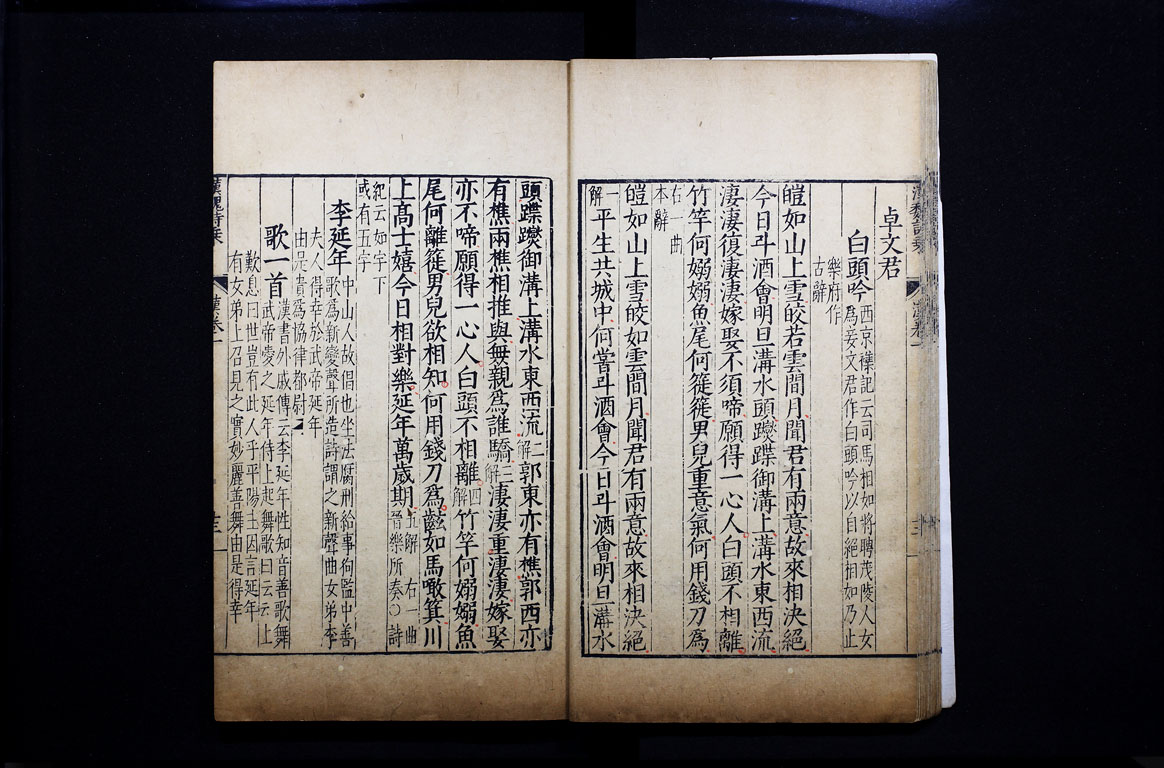 卓文君
白頭吟
西京襍記云司馬相如將聘茂陵人女
爲妾文君作白頭吟以自絕相如乃止
樂府作
古辭
皚如山上雪皎若雲間月聞君有兩意故來相決絕
今日斗酒會明旦溝水頭躞蹀御溝上溝水東西流
淒淒復淒淒嫁娶不須啼願得一心人白頭不相離
竹竿何嫋嫋魚尾何簁簁男兒重意氣何用錢刀爲
右一曲
本辭
皚如山上雪皎如雲間月聞君有兩意故來相決絕
一解平生共城中何嘗斗酒會今日斗酒會明旦溝水
頭蹀躞御溝上溝水東西流二解郭東亦有樵郭西亦
有樵兩樵相推與無親爲誰驕三解淒淒重淒淒嫁娶
亦不啼願得一心人白頭不相離四解竹竿何嫋嫋魚
尾何離簁男兒欲相知何用錢刀爲䶕如馬噉箕川
上高士嬉今日相對樂延年萬歲期五解 右一曲晉樂所奏○詩
紀云如字下
或有五字
李延年
中山人故倡也坐法腐刑給事狗監中善
歌爲新變聲所造詩謂之新聲曲女弟李
夫人得幸於武帝延年
由是貴爲協律都尉
歌一首
漢書外戚傳云李延年性知音善歌舞
武帝愛之延年侍上起舞歌曰云云上
歎息曰世豈有此人乎平陽主因言延年
有女弟上召見之實妙麗善舞由是得幸
漢魏詩乘
漢卷一